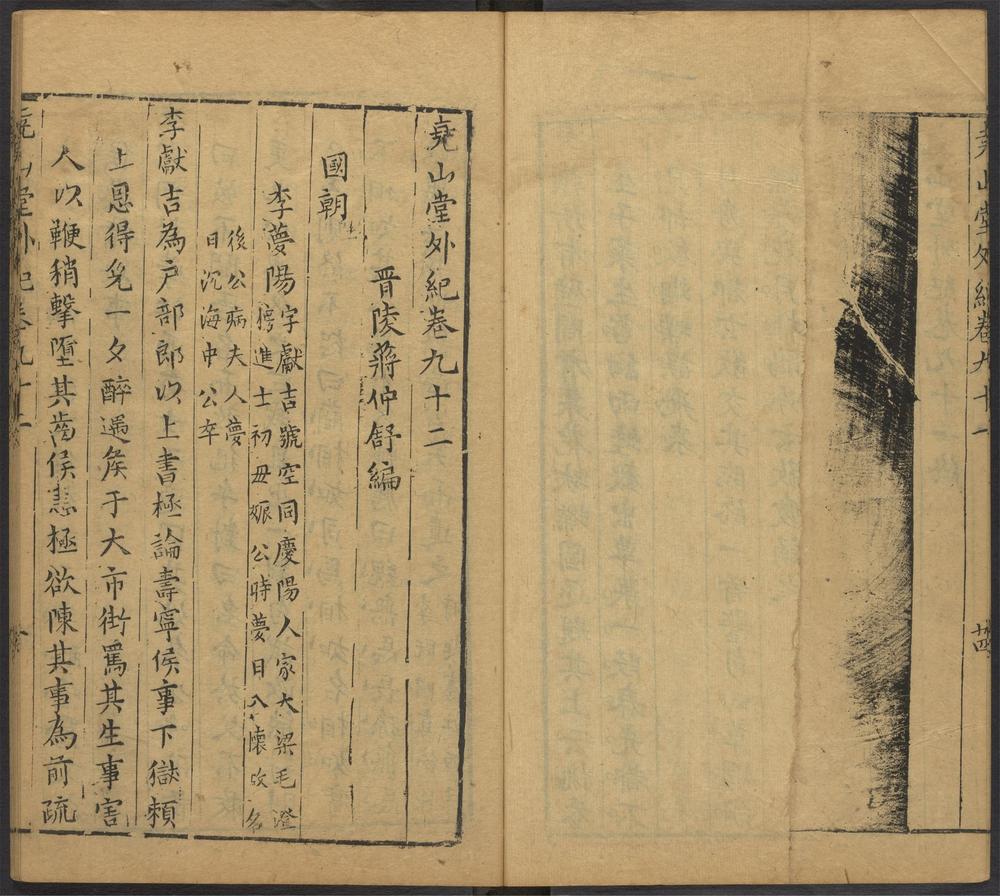 堯山堂外紀卷九十一
廿四
堯山堂外紀卷九十二
晋陵蔣仲舒編
國朝
李夢陽字獻吉號空同慶陽人家大梁毛澄
榜進士初毋娠公時夢日入懷故名
後公病夫人夢
日沉海中公卒
李獻吉為户部郎以上書極論壽寜侯事下獄頼
上恩得免一夕醉遇矦于大市街罵其生事害
人以鞭稍擊墮其齒侯恚極欲陳其事為前疏
堯山堂外紀卷九十二
一